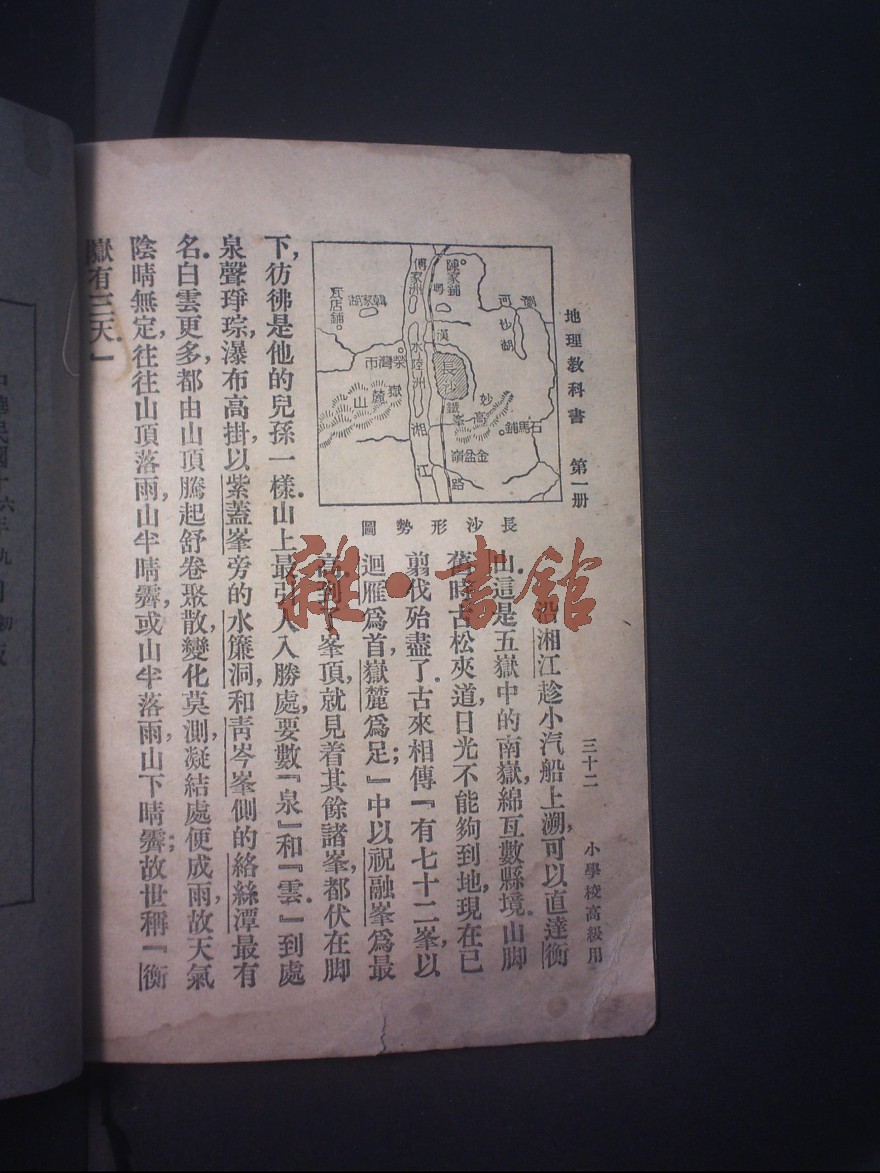 地理教科書 第一册
三十二 小學校高級用
陳家鋪
傅家洲
瀏河
沙湖
韓家湖
瓦店鋪
粵漢鐵路
水陸洲
長沙
榮灣市
嶽麓山
妙高峯
石馬鋪
金盆嶺
湘江
長沙形勢圖
沿湘江趁小汽船上溯,可以直達衡
山.這是五嶽中的南嶽,綿亙數縣境.山脚
舊時古松夾道,日光不能夠到地,現在已
翦伐殆盡了.古來相傳『有七十二峯,以
迴雁爲首,嶽麓爲足;』中以祝融峯爲最
高.到了峯頂,就見着其餘諸峯,都伏在脚
下,彷彿是他的兒孫一樣.山上最引人入勝處,要數『泉』和『雲.』到處
泉聲琤琮,瀑布高掛,以紫蓋峯旁的水簾洞,和靑岑峯側的絡絲潭最有
名.白雲更多,都由山頂騰起,舒卷聚散,變化莫測,凝結處便成雨,故天氣
陰晴無定,往往山頂落雨,山半晴霽,或山半落雨,山下晴霽;故世稱『衡
嶽有三天.』
中華民國十六年九月初版
雜·書館